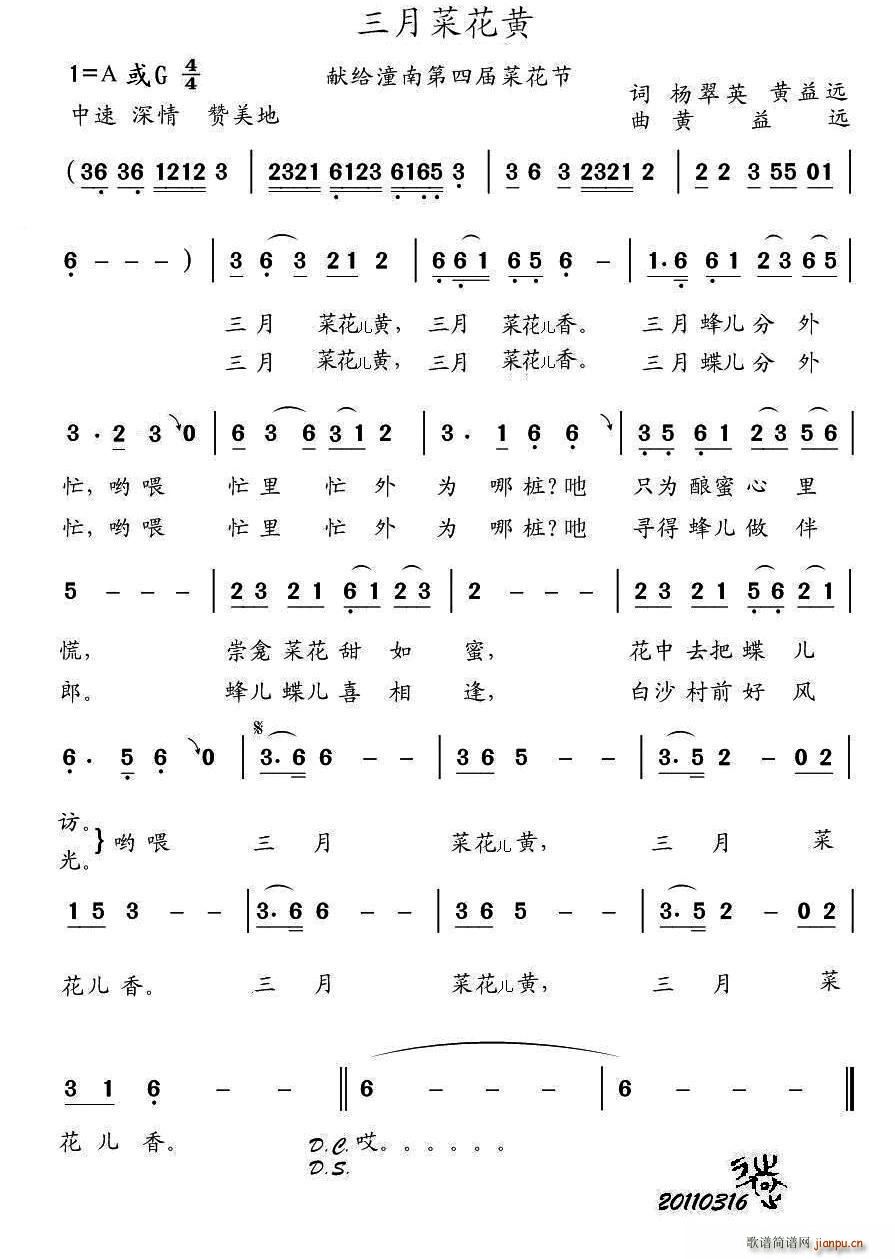 三月菜花黄
1=A 或G 4/4
献给潼南第四届菜花节
词 杨翠英 黄益远
中速 深情 赞美地
曲 黄益远
(36 36 1212 3 | 2321 6123 6165 3 | 3 6 3 2321 2 | 2 2 3 55 01 |
6 - - - ) | 3 6 3 21 2 | 6 61 65 6 - | 1.6 61 23 65 |
三月 菜花儿黄, 三月 菜花儿香。 三月蜂儿分外
三月 菜花儿黄, 三月 菜花儿香。 三月蝶儿分外
3 . 2 3 0 | 6 3 6 31 2 | 3. 1 6 6 | 35 61 23 56 |
忙, 哟喂 忙里忙外 为哪桩?吔 只为酿蜜心里
忙, 哟喂 忙里忙外 为哪桩?吔 寻得蜂儿做伴
5 - - - | 23 21 61 23 | 2 - - - | 23 21 56 21 |
慌, 崇龛菜花甜如蜜, 花中去把蝶儿
郎。 蜂儿蝶儿喜相逢, 白沙村前好风
6 . 5 6 0 | 3.6 6 - - | 36 5 - - | 3.5 2 - 02 |
访。
光。
} 哟喂 三月 菜花儿黄, 三月 菜
15 3 - - | 3.6 6 - - | 36 5 - - | 3.5 2 - 02 |
花儿香。 三月 菜花儿黄, 三月 菜
31 6 - - || 6 - - - | 6 - - - ||
花儿香。 D.C. 哎。。。。。。
D.S.
20110316
歌谱简谱网
jianpu.cn